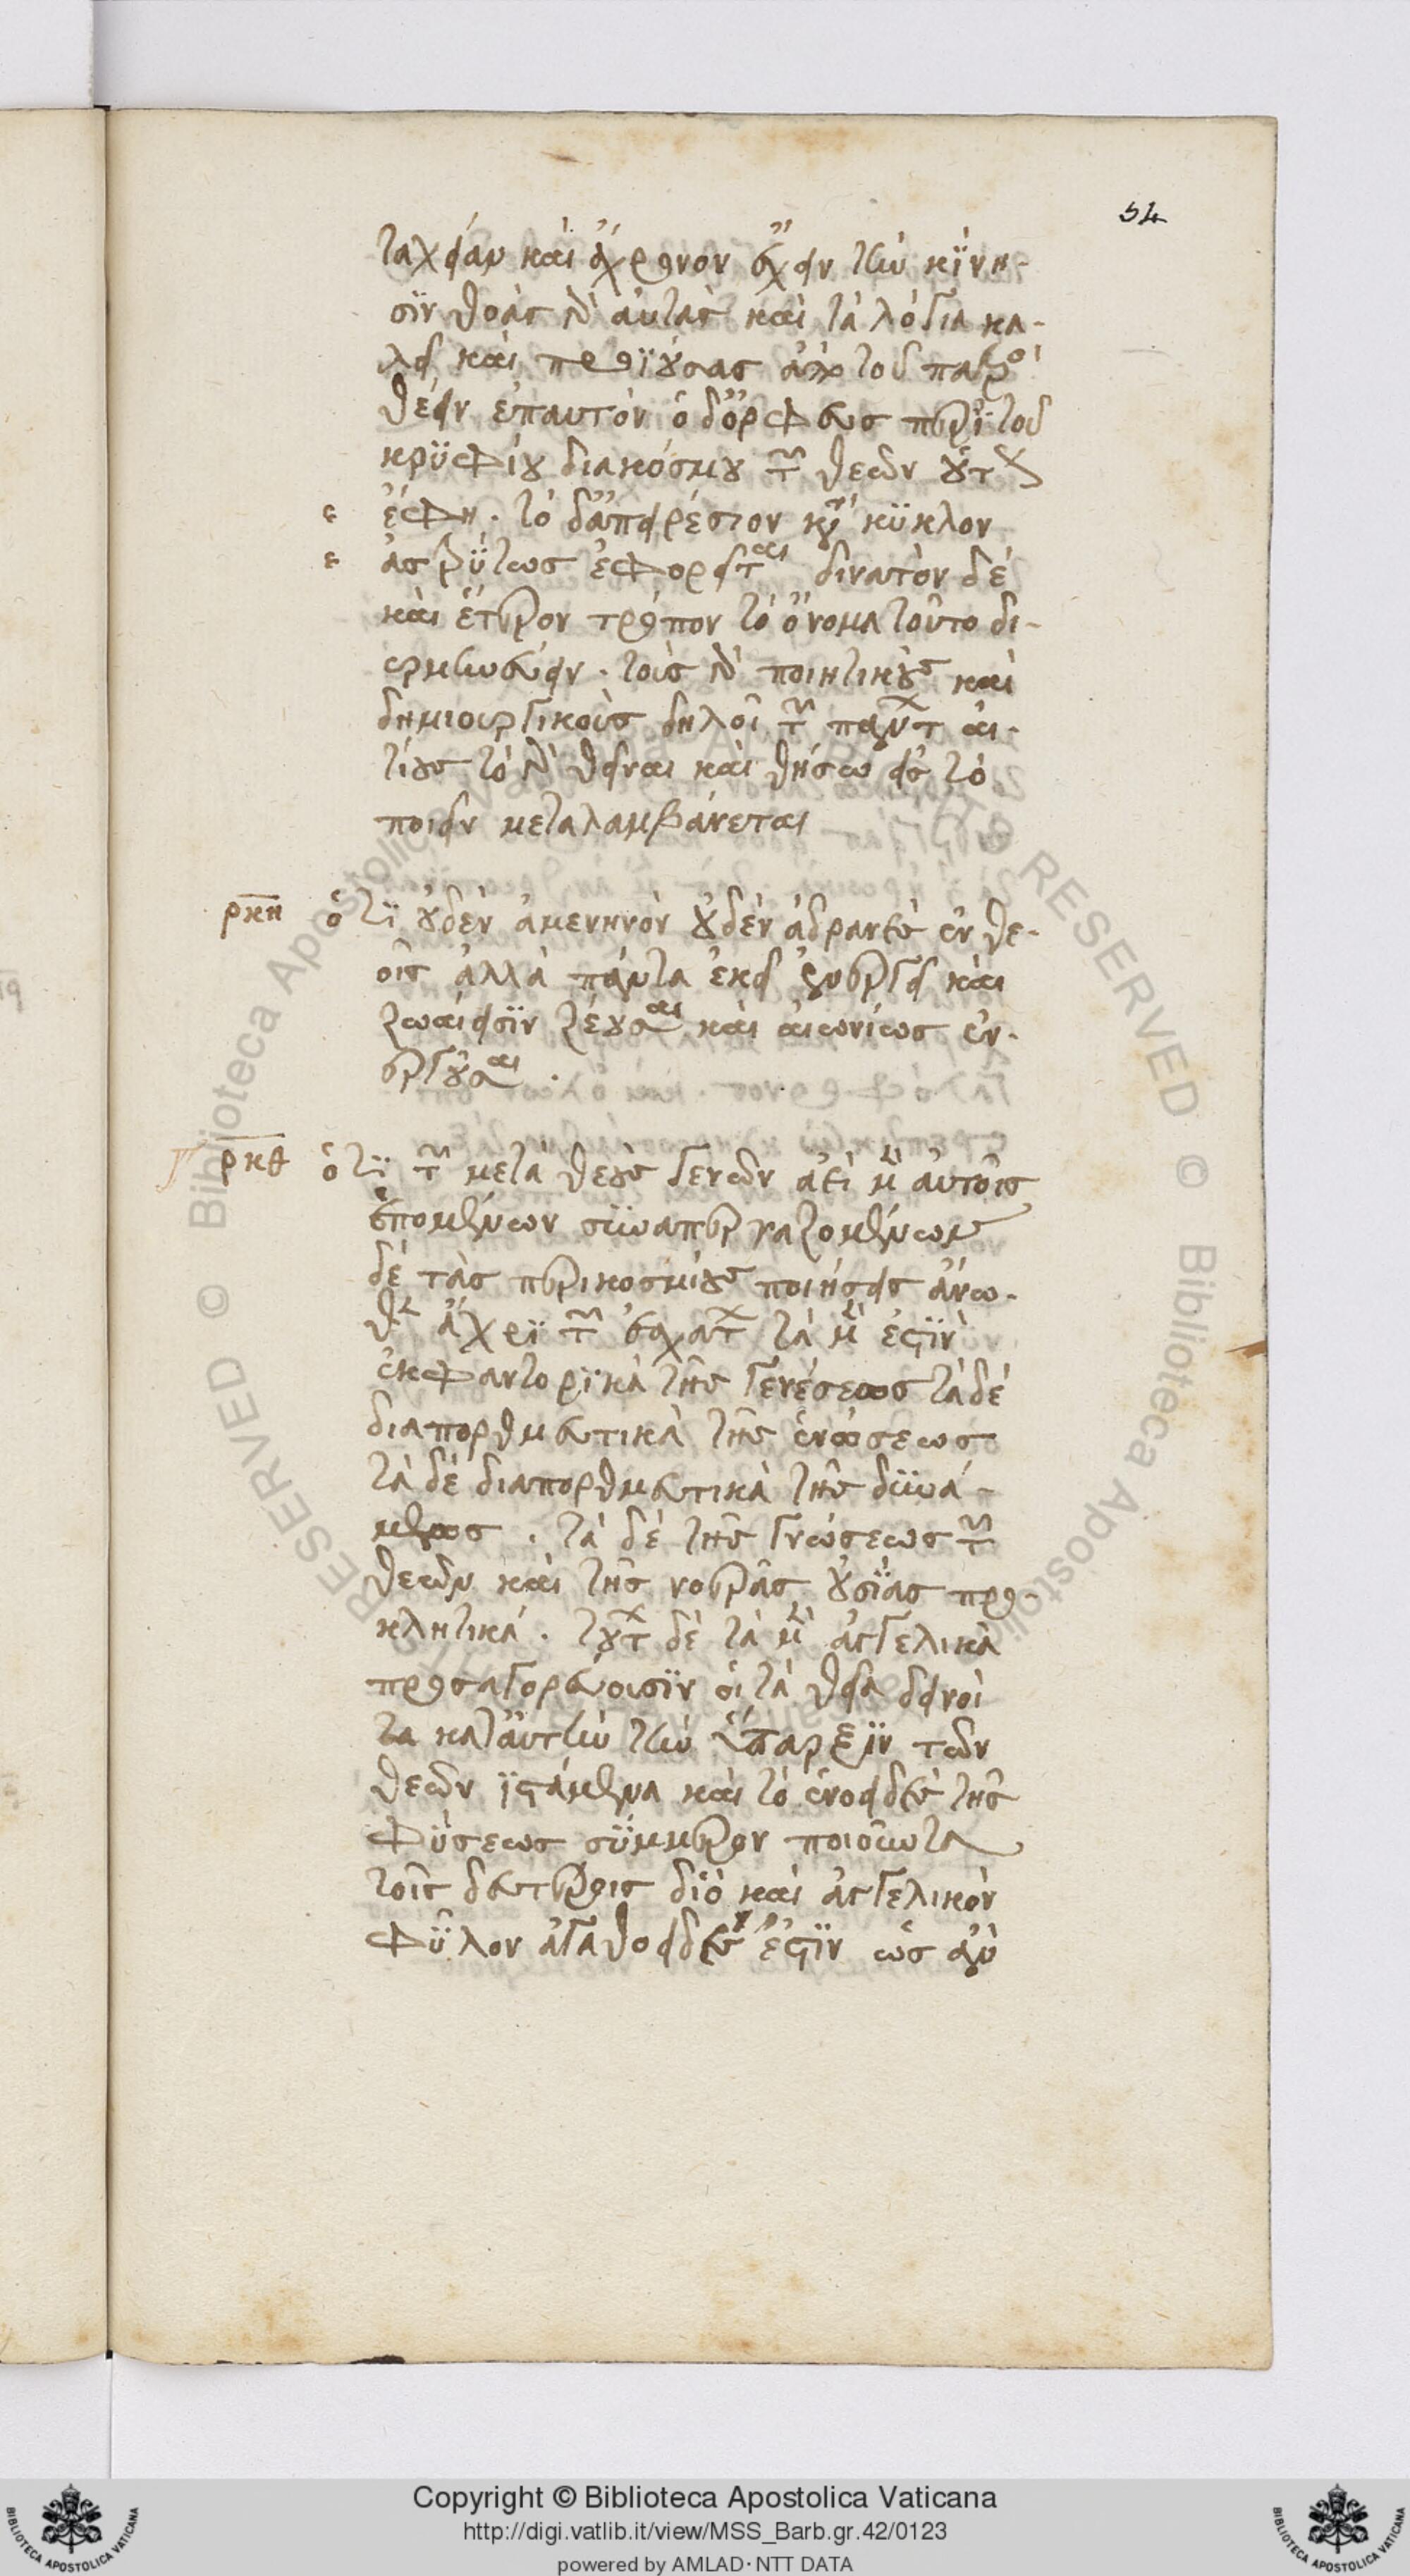 54
ταχεῖαν καὶ ἄχρονον ἔχειν τὴν κίνη-
σϊν θοὰς γὰρ αὐτὰς καὶ τὰ λόγια κα-
λεῖ καὶ προϊούσας ἀπὸ τοῦ πατρὸς
θέειν ἐπαυτὸν ὁ δ' ὀρφεὺς περὶ τοῦ
κρυφίου διακόσμου τῶν θεῶν οὕτως
ἔφη. τὸ δ' ἀπειρέσιον κατὰ κύκλον
ἀτρύτως ἐφορεῖται δυνατὸν δὲ
καὶ ἕτερον τρόπον τὸ ὄνομα τοῦτο δι-
ερμηνεύειν. τοὺς γὰρ ποιητικοὺς καὶ
δημιουργικοὺς δηλοῖ τῶν πάντων αἰ-
τίους τὸ γὰρ θεῖναι καὶ θήσω εἰς τὸ
ποιεῖν μεταλαμβάνεται
ρκη ὅτϊ οὐδὲν ἀμενηνὸν οὐδὲν ἀδρανὲς ἐν θε-
οῖς ἀλλὰ πάντα ἐκεῖ ἐνεργεῖ καὶ
ζωαί εἰσϊν ζέουσαι καὶ αἰωνίως ἐν-
εργοῦσαι.
ρκθ ὅτϊ τῶν μετὰ θεοὺς γενῶν ἀεὶ μὲν αὐτοῖς
ἑπομένων συναπεργαζομένων
δὲ τὰς περικοσμίους ποιήσεις ἄνω-
θεν ἄχρϊ τῶν ἐσχάτων τὰ μέν ἐστϊν
ἐκφαντορϊκὰ τῆς γενέσεως τὰ δὲ
διαπορθμευτικὰ τῆς ἑνώσεως
τὰ δὲ διαπορθμευτικὰ τῆς δυνά-
μεως. τὰ δὲ τῆς γνώσεως τῶν
θεῶν καὶ τῆς νοερᾶς οὐσίας προ-
κλητικά. τούτων δὲ τὰ μὲν ἀγγελικὰ
προσαγορεύουσϊν οἱ τὰ θεῖα δεινοὶ
τα κατ' αὐτὴν τὴν ὕπαρξϊν τῶν
θεῶν ϊστάμενα καὶ τὸ ἑνοειδὲς τῆς
φύσεως σύμμετρον ποιοῦντα
τοῖς δευτέροις διὸ καὶ ἀγγελικὸν
φῦλον ἀγαθοειδές ἐστϊν ὡς ἂν
Copyright © Biblioteca Apostolica Vaticana
http://digi.vatlib.it/view/MSS_Barb.gr.42/0123
powered by AMLAD·NTT DATA